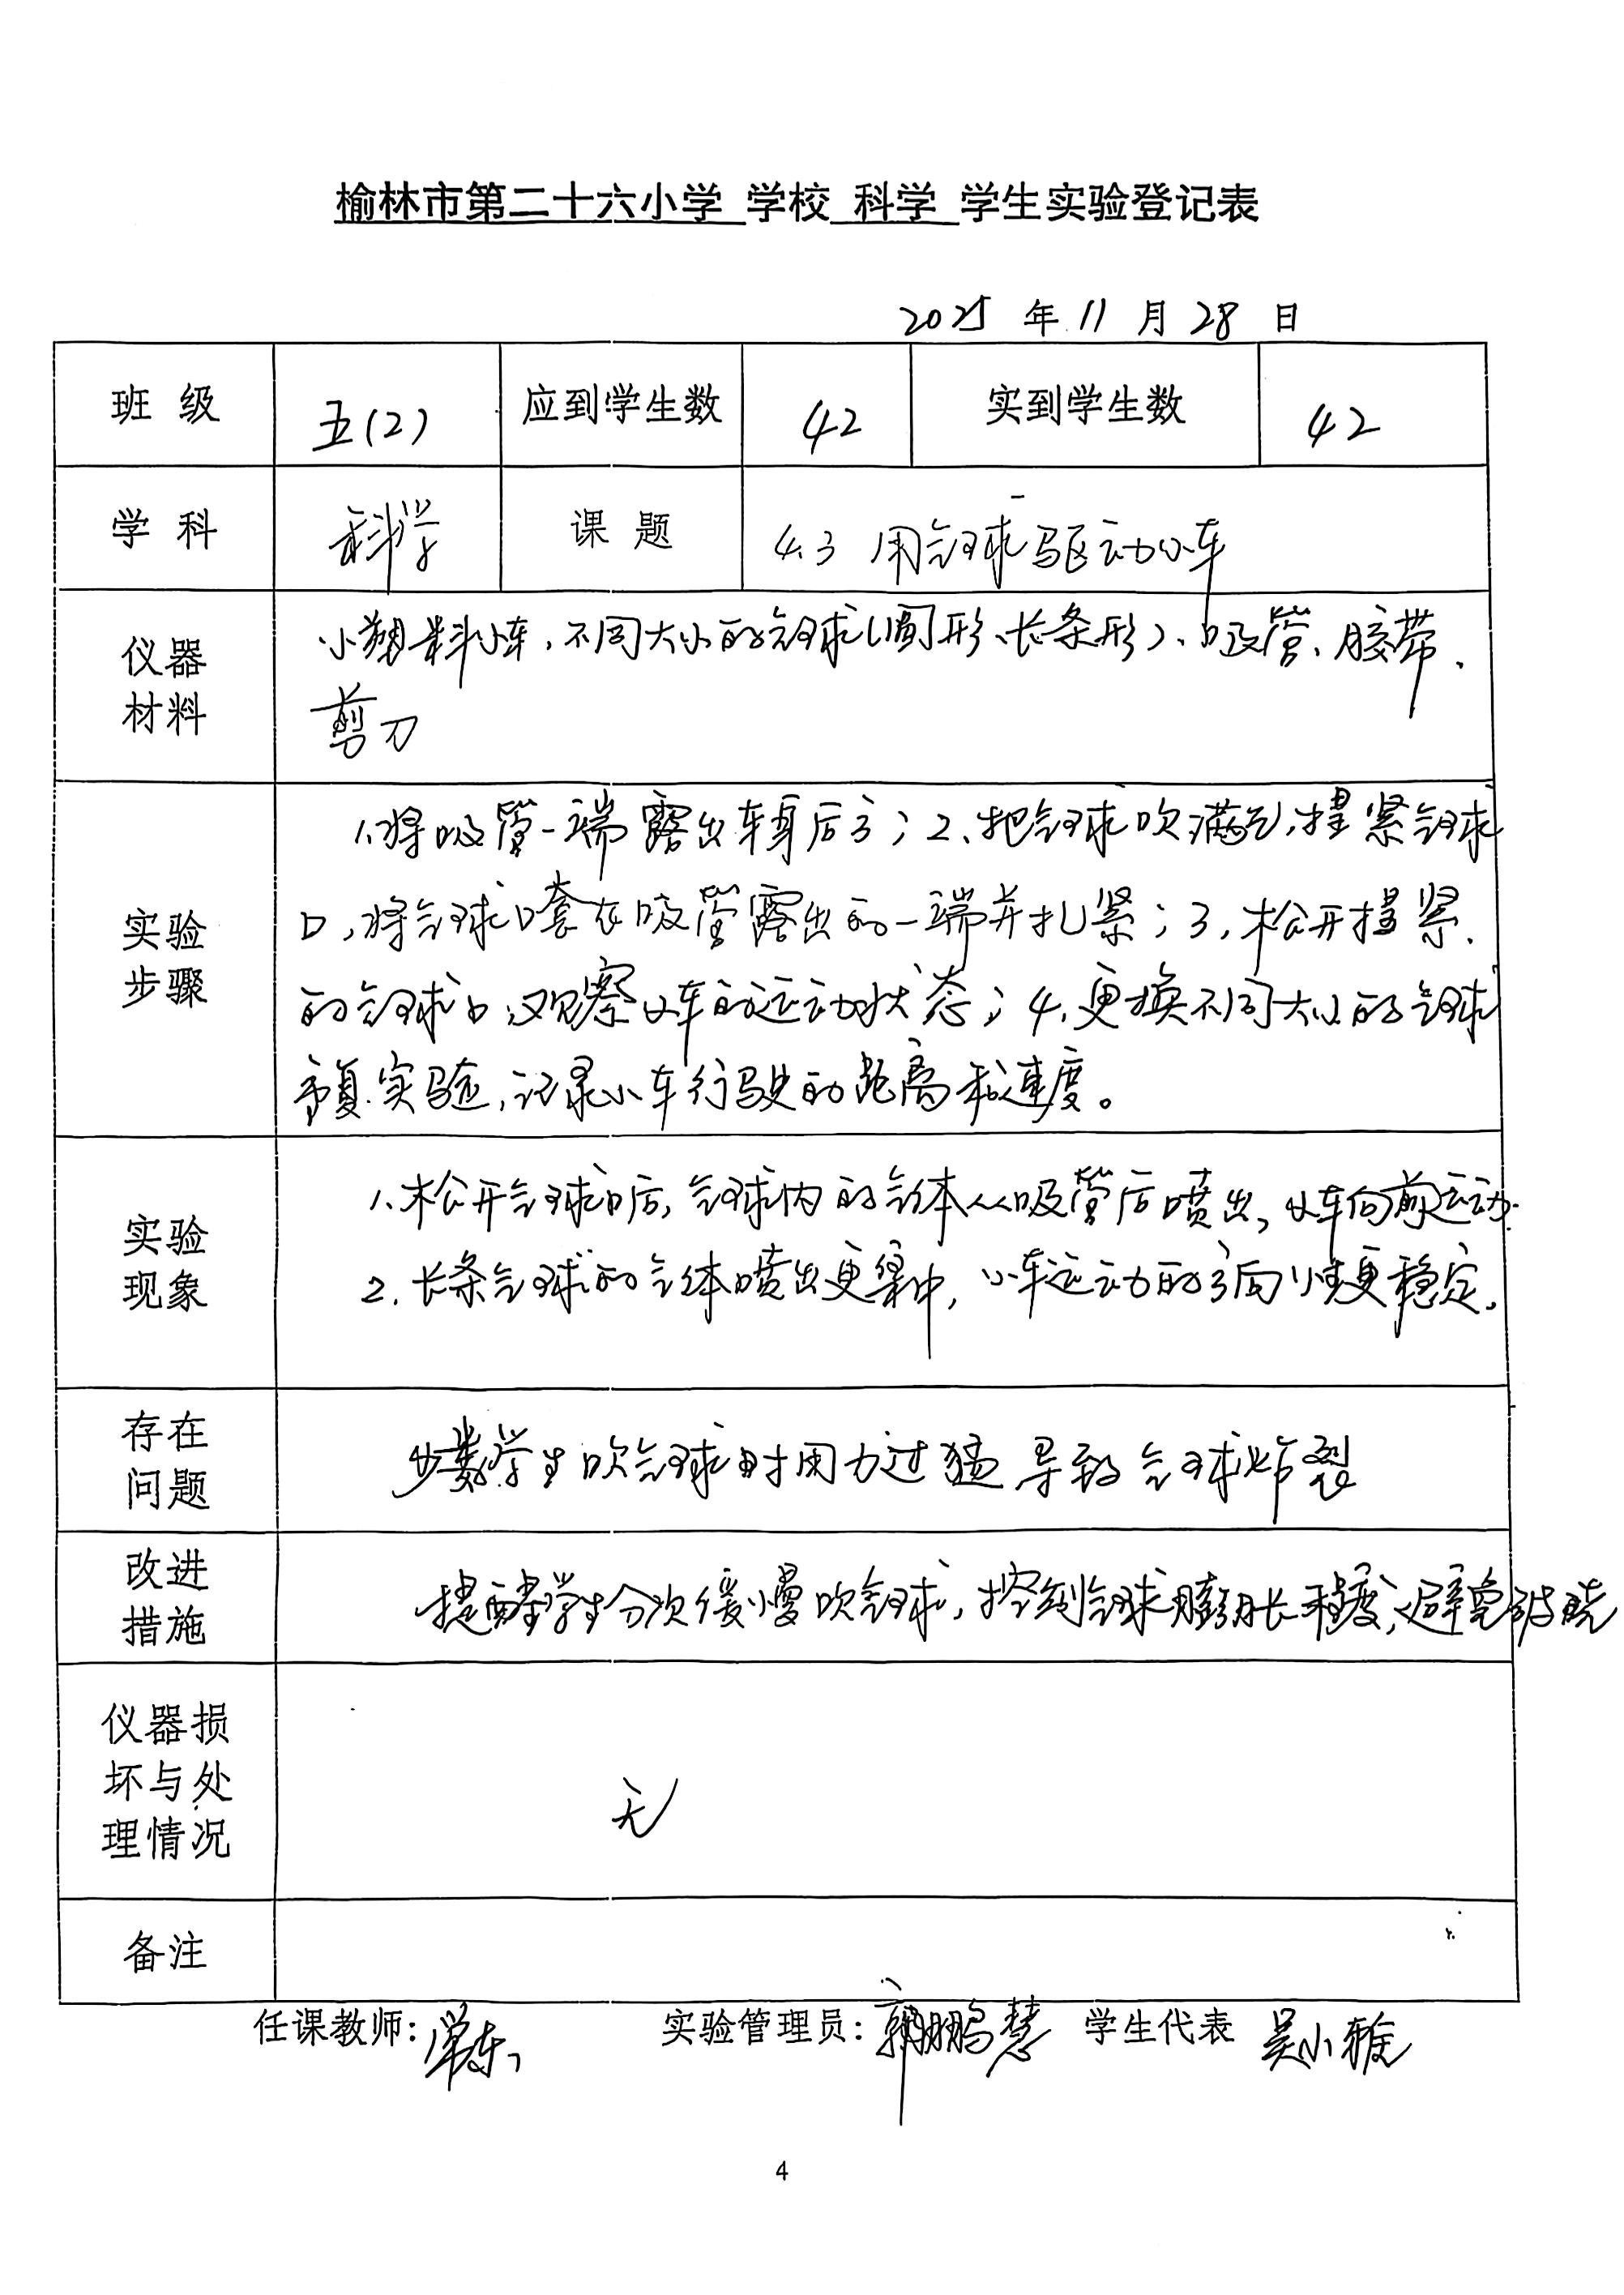 榆林市第二十六小学 学校 科学 学生实验登记表
2025 年 11 月 28 日
班 级 五(2) 应到学生数 42 实到学生数 42
学 科 科学 课 题 4.3 用气球驱动小车
仪器
材料
小塑料小车、不同大小的气球(圆形、长条形)、吸管、胶带、
剪刀
实验
步骤
1、将吸管一端露出车身后方;2、把气球吹满气,捏紧气球
口,将气球口套在吸管露出的一端并扎紧;3、松开捏紧
的气球口,观察小车的运动状态;4、更换不同大小的气球
重复实验,记录小车行驶的距离和速度。
实验
现象
1、松开气球口后,气球内的气体从吸管后喷出,小车向前运动.
2. 长条气球的气体喷出更集中,小车运动的方向性更稳定。
存在
问题
少数学生吹气球时用力过猛导致气球炸裂
改进
措施
提醒学生分次缓慢吹气球,控制气球膨胀程度,避免破裂
仪器损
坏与处
理情况
无
备注
任课教师: 实验管理员:郭鹏慧 学生代表 吴小
4